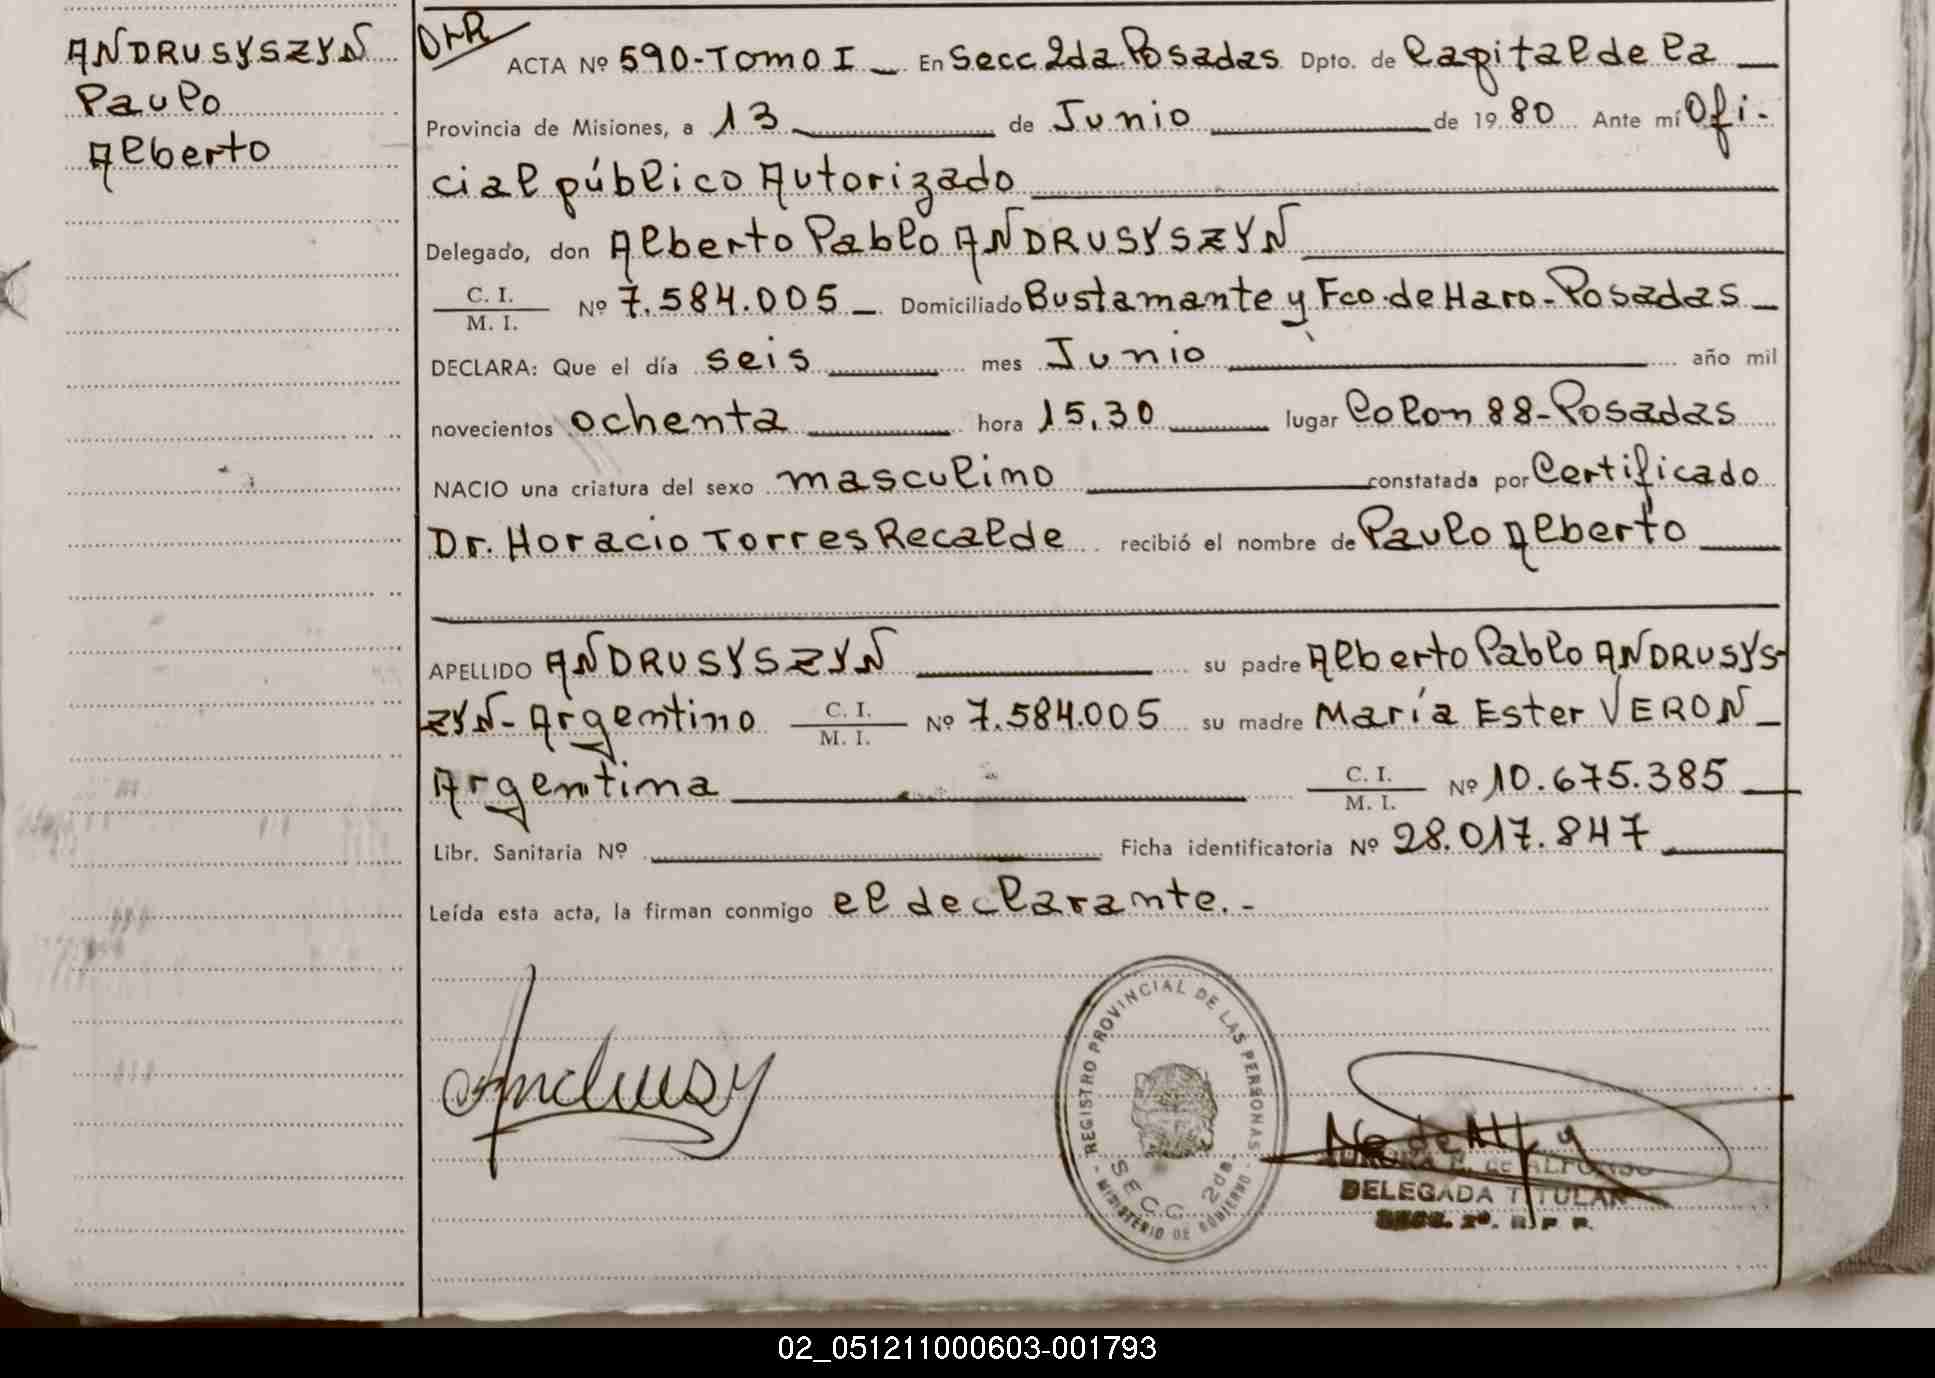 ANDRUSYSZYN
Paulo
Alberto
ACTA Nº 590-Tomo I En Secc 2da. Posadas Dpto. de Capital de la
Provincia de Misiones, a 13 de Junio de 1980 Ante mí Ofi-
cial público Autorizado
Delegado, don Alberto Pablo ANDRUSYSZYN
C. I.
M. I. Nº 7.584.005 Domiciliado Bustamante y Fco. de Haro-Posadas
DECLARA: Que el día seis mes Junio año mil
novecientos ochenta hora 15,30 lugar Colon 88-Posadas
NACIO una criatura del sexo masculino constatada por Certificado
Dr. Horacio Torres Recalde recibió el nombre de Paulo Alberto
APELLIDO ANDRUSYSZYN su padre Alberto Pablo ANDRUSYS-
ZYN-Argentino C. I. M. I. Nº 7.584.005 su madre María Ester VERON
Argentina C. I. M. I. Nº 10.675.385
Libr. Sanitaria Nº Ficha identificatoria Nº 28.017.847
Leída esta acta, la firman conmigo el declarante.-
REGISTRO PROVINCIAL DE LAS PERSONAS
SECC. 2da.
MINISTERIO DE GOBIERNO
de ALFONSO
DELEGADA TITULAR
SECC. 2ª. R. P. P.
02_051211000603-001793